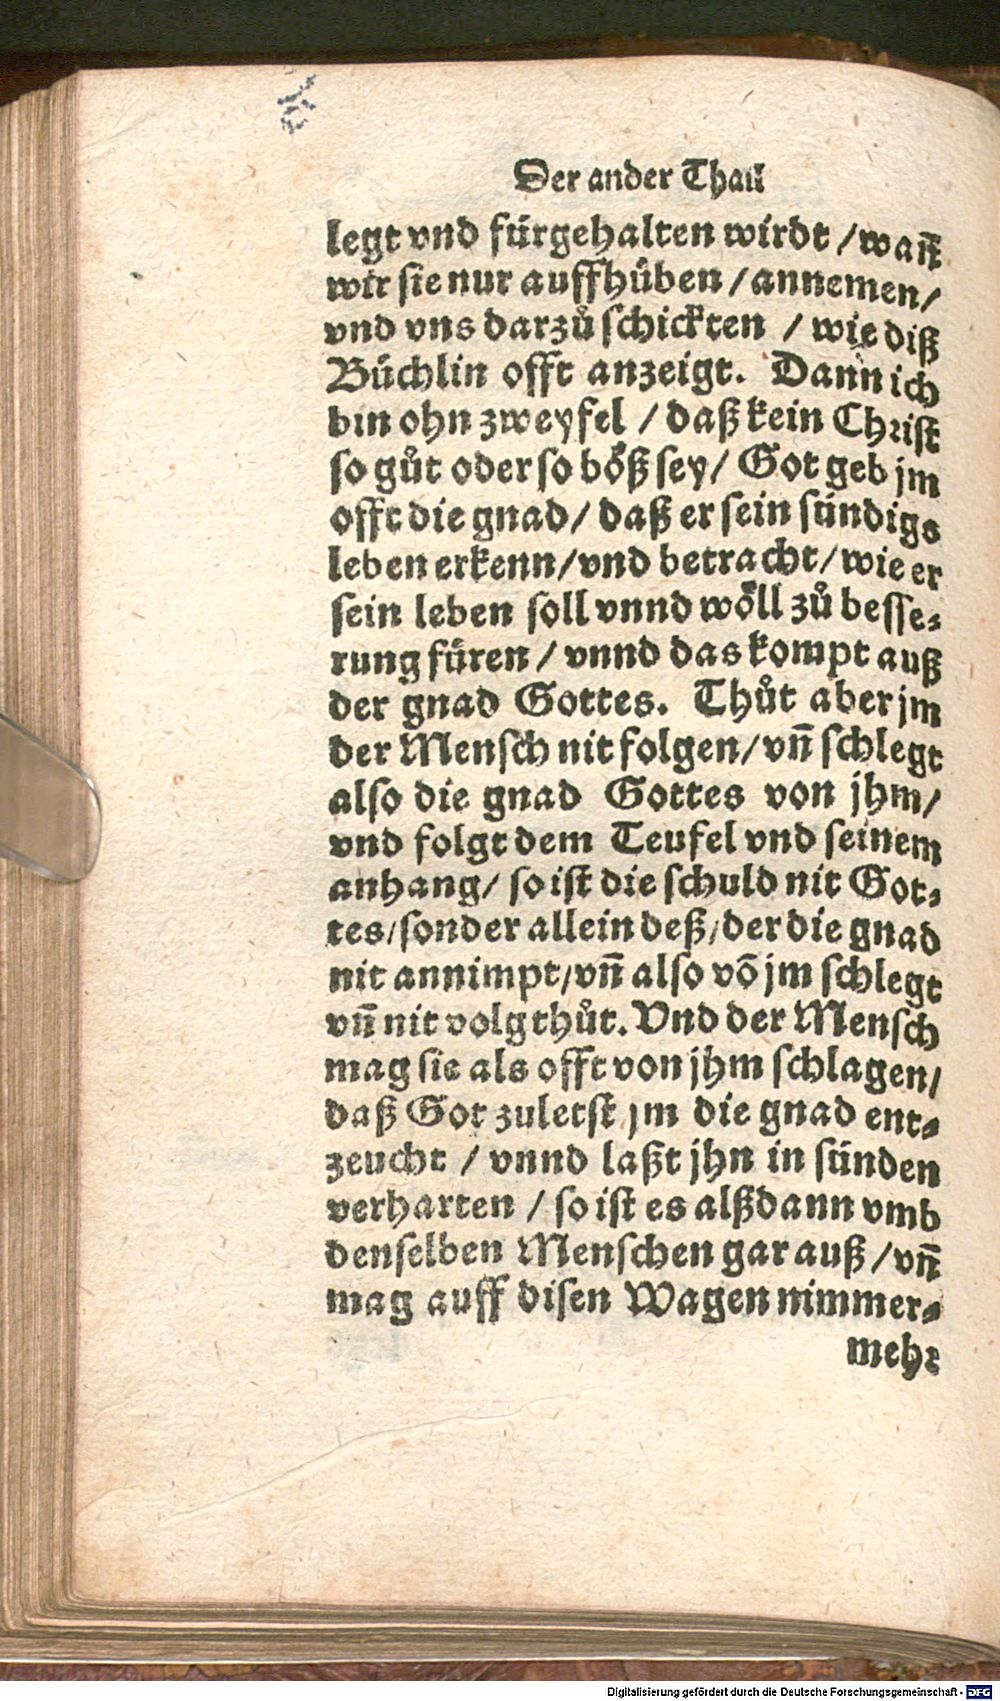 Der ander Thail
legt vnd fürgehalten wirdt / wañ
wir sie nur auffhüben / annemen /
vnd vns darzů schickten / wie diß
Büchlin offt anzeigt. Dann ich
bin ohn zweyfel / daß kein Christ
so gůt oder so böß sey / Got geb jm
offt die gnad / daß er sein sündigs
leben erkenn / vnd betracht / wie er
sein leben soll vnnd wöll zů besse-
rung füren / vnnd das kompt auß
der gnad Gottes. Thůt aber jm
der Mensch nit folgen / vñ schlegt
also die gnad Gottes von jhm /
vnd folgt dem Teufel vnd seinem
anhang / so ist die schuld nit Got-
tes / sonder allein deß / der die gnad
nit annimpt / vñ also võ jm schlegt
vñ nit volg thůt. Vnd der Mensch
mag sie als offt von jhm schlagen /
daß Got zuletst jm die gnad ent-
zeucht / vnnd laßt jhn in sünden
verharten / so ist es alßdann vmb
denselben Menschen gar auß / vñ
mag auff disen Wagen nimmer-
mehr
Digitalisierung gefördert durch die Deutsche Forschungsgemeinschaft - DFG